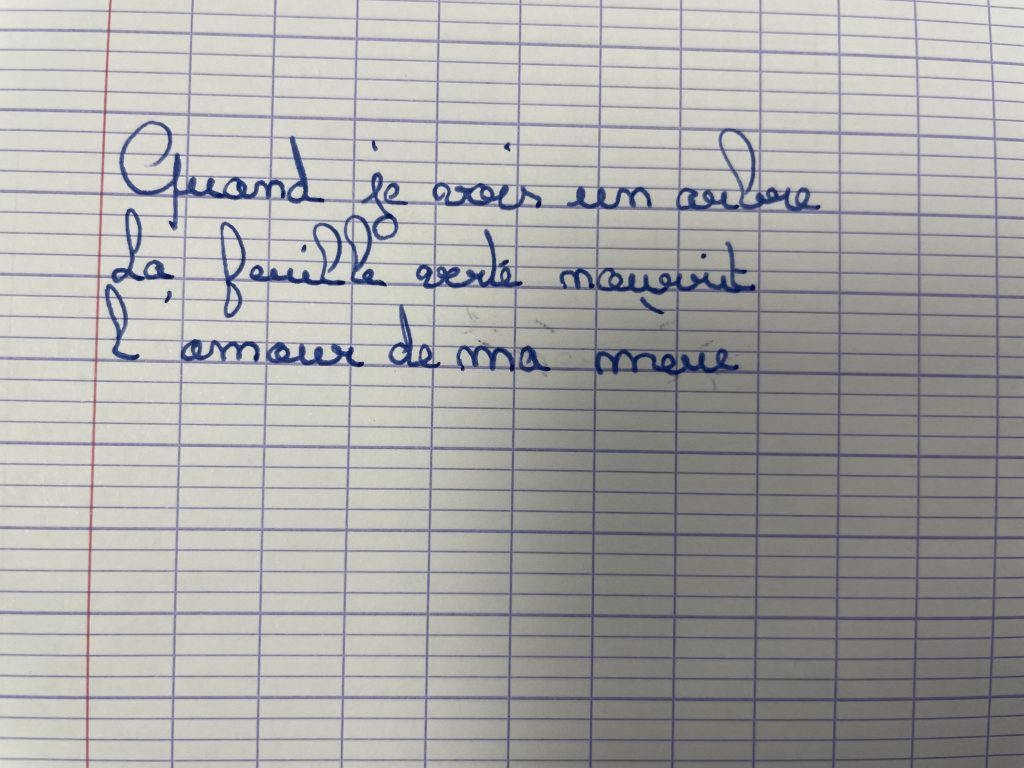 Quand je vois un arbre
La feuille verte nourrit
L'amour de ma mère